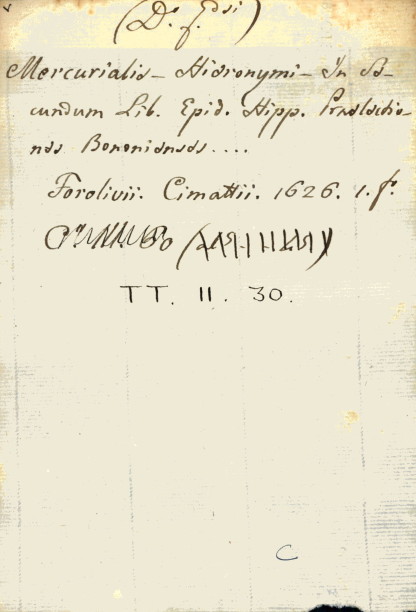 (D. f. Edsi)
Mercurialis - Hieronymi - In Se-
cundum Lib. Epid. Hipp. Praelectio-
nes Bononienses....
Forolivii. Cimattii. 1626. 1. f.
TT. II. 30.
C